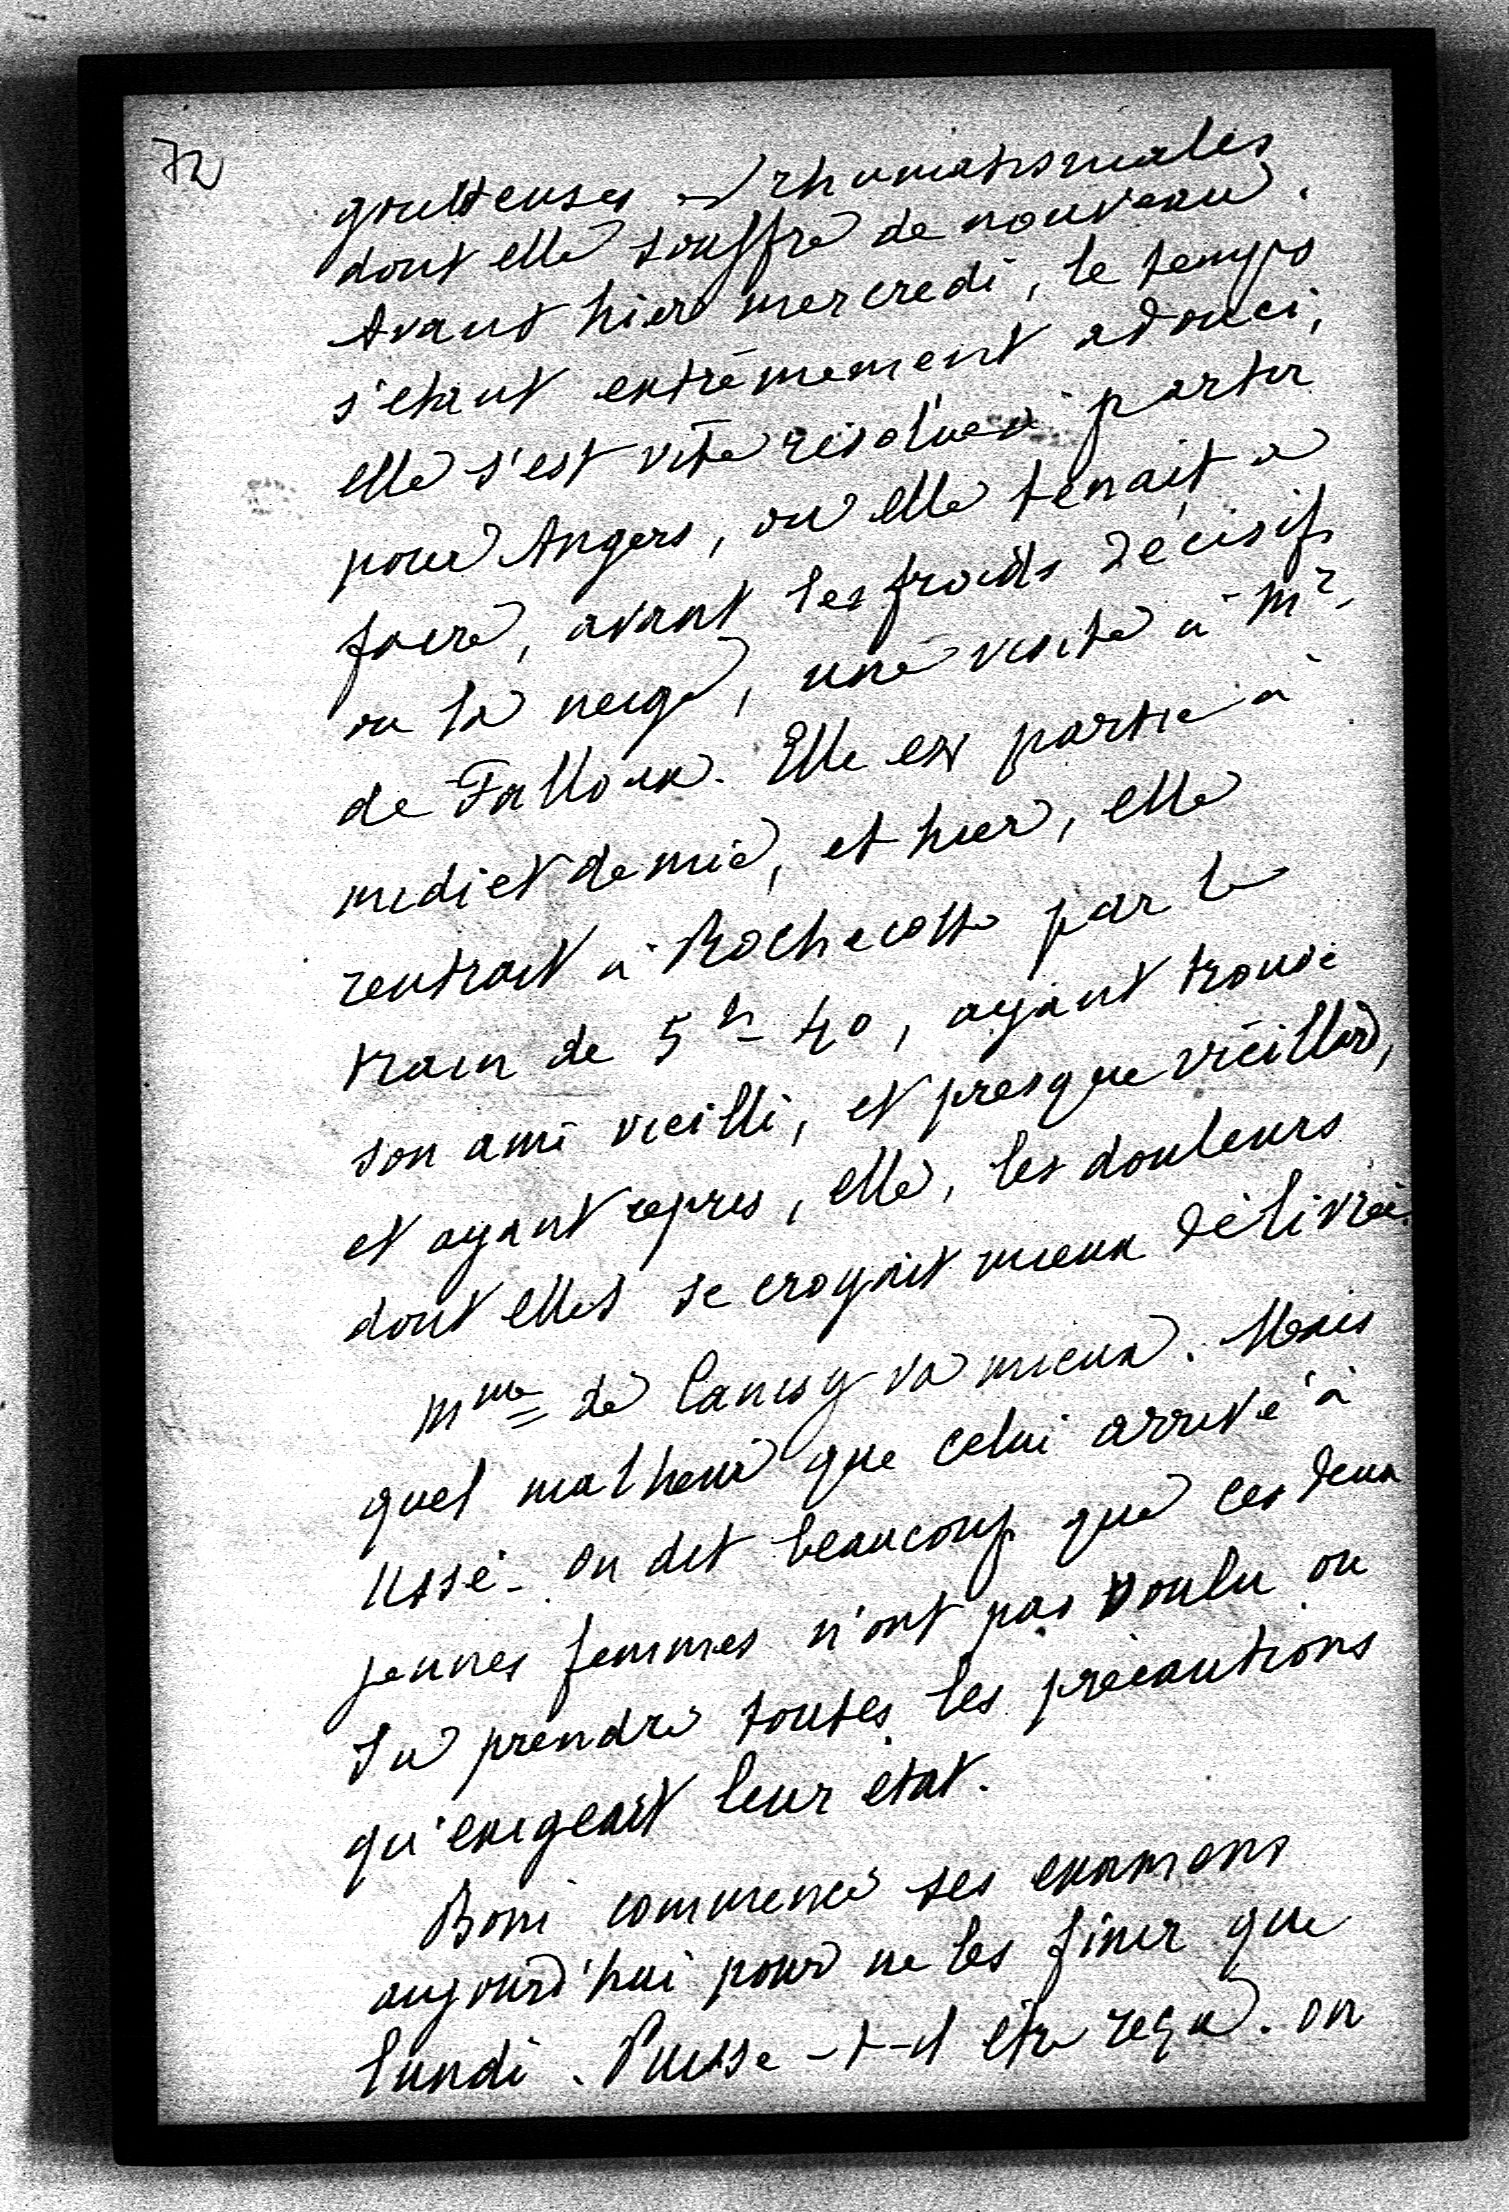 72
goutteuses et rhumatismales
dont elle souffre de nouveau.
Avant hier mercredi, le temps
s'étant extrêmement adouci,
elle s'est vite résolue à partir
pour Angers, où elle tenait à
faire, avant les froids décisifs
ou la neige, une visite à Mr
de Falloux. Elle est partie à
midi et demie, et hier, elle
rentrait à Rochecotte par le
train de 5h 40, ayant trouvé
son ami vieilli, et presque vieillard,
et ayant repris, elle, les douleurs
dont elle se croyait mieux délivrée.
Mme de Lancoy va mieux. Mais
quel malheur que celui arrivé à
Ussé - On dit beaucoup que ces deux
jeunes femmes n'ont pas voulu ou
su prendre toutes les précautions
qu'exigeait leur état.
Boni commence ses examens
aujourd'hui pour ne les finir que
lundi. Puisse-t-il être reçu. On